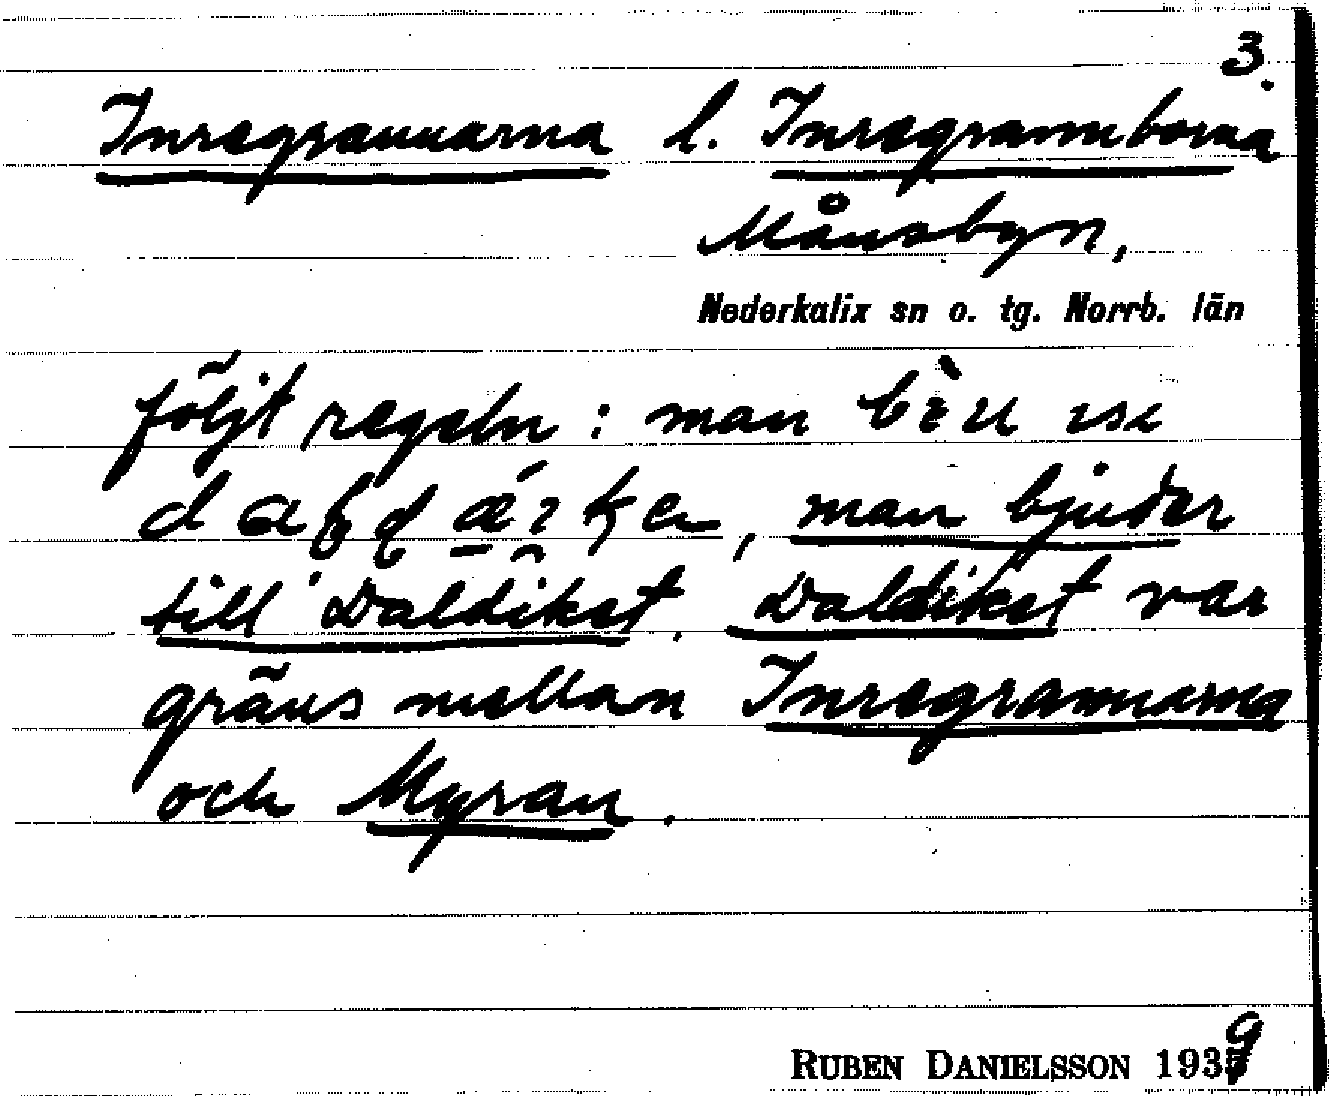 3.
Inregrannarna l. Inregrannborna
Månsbyn,
Nederkalix sn o. tg. Norrb. län
följt regeln : man
, man bjuder
till Daldiket. Daldiket var
gräns mellan Inregrannarna
och Myran.
RUBEN DANIELSSON 1939